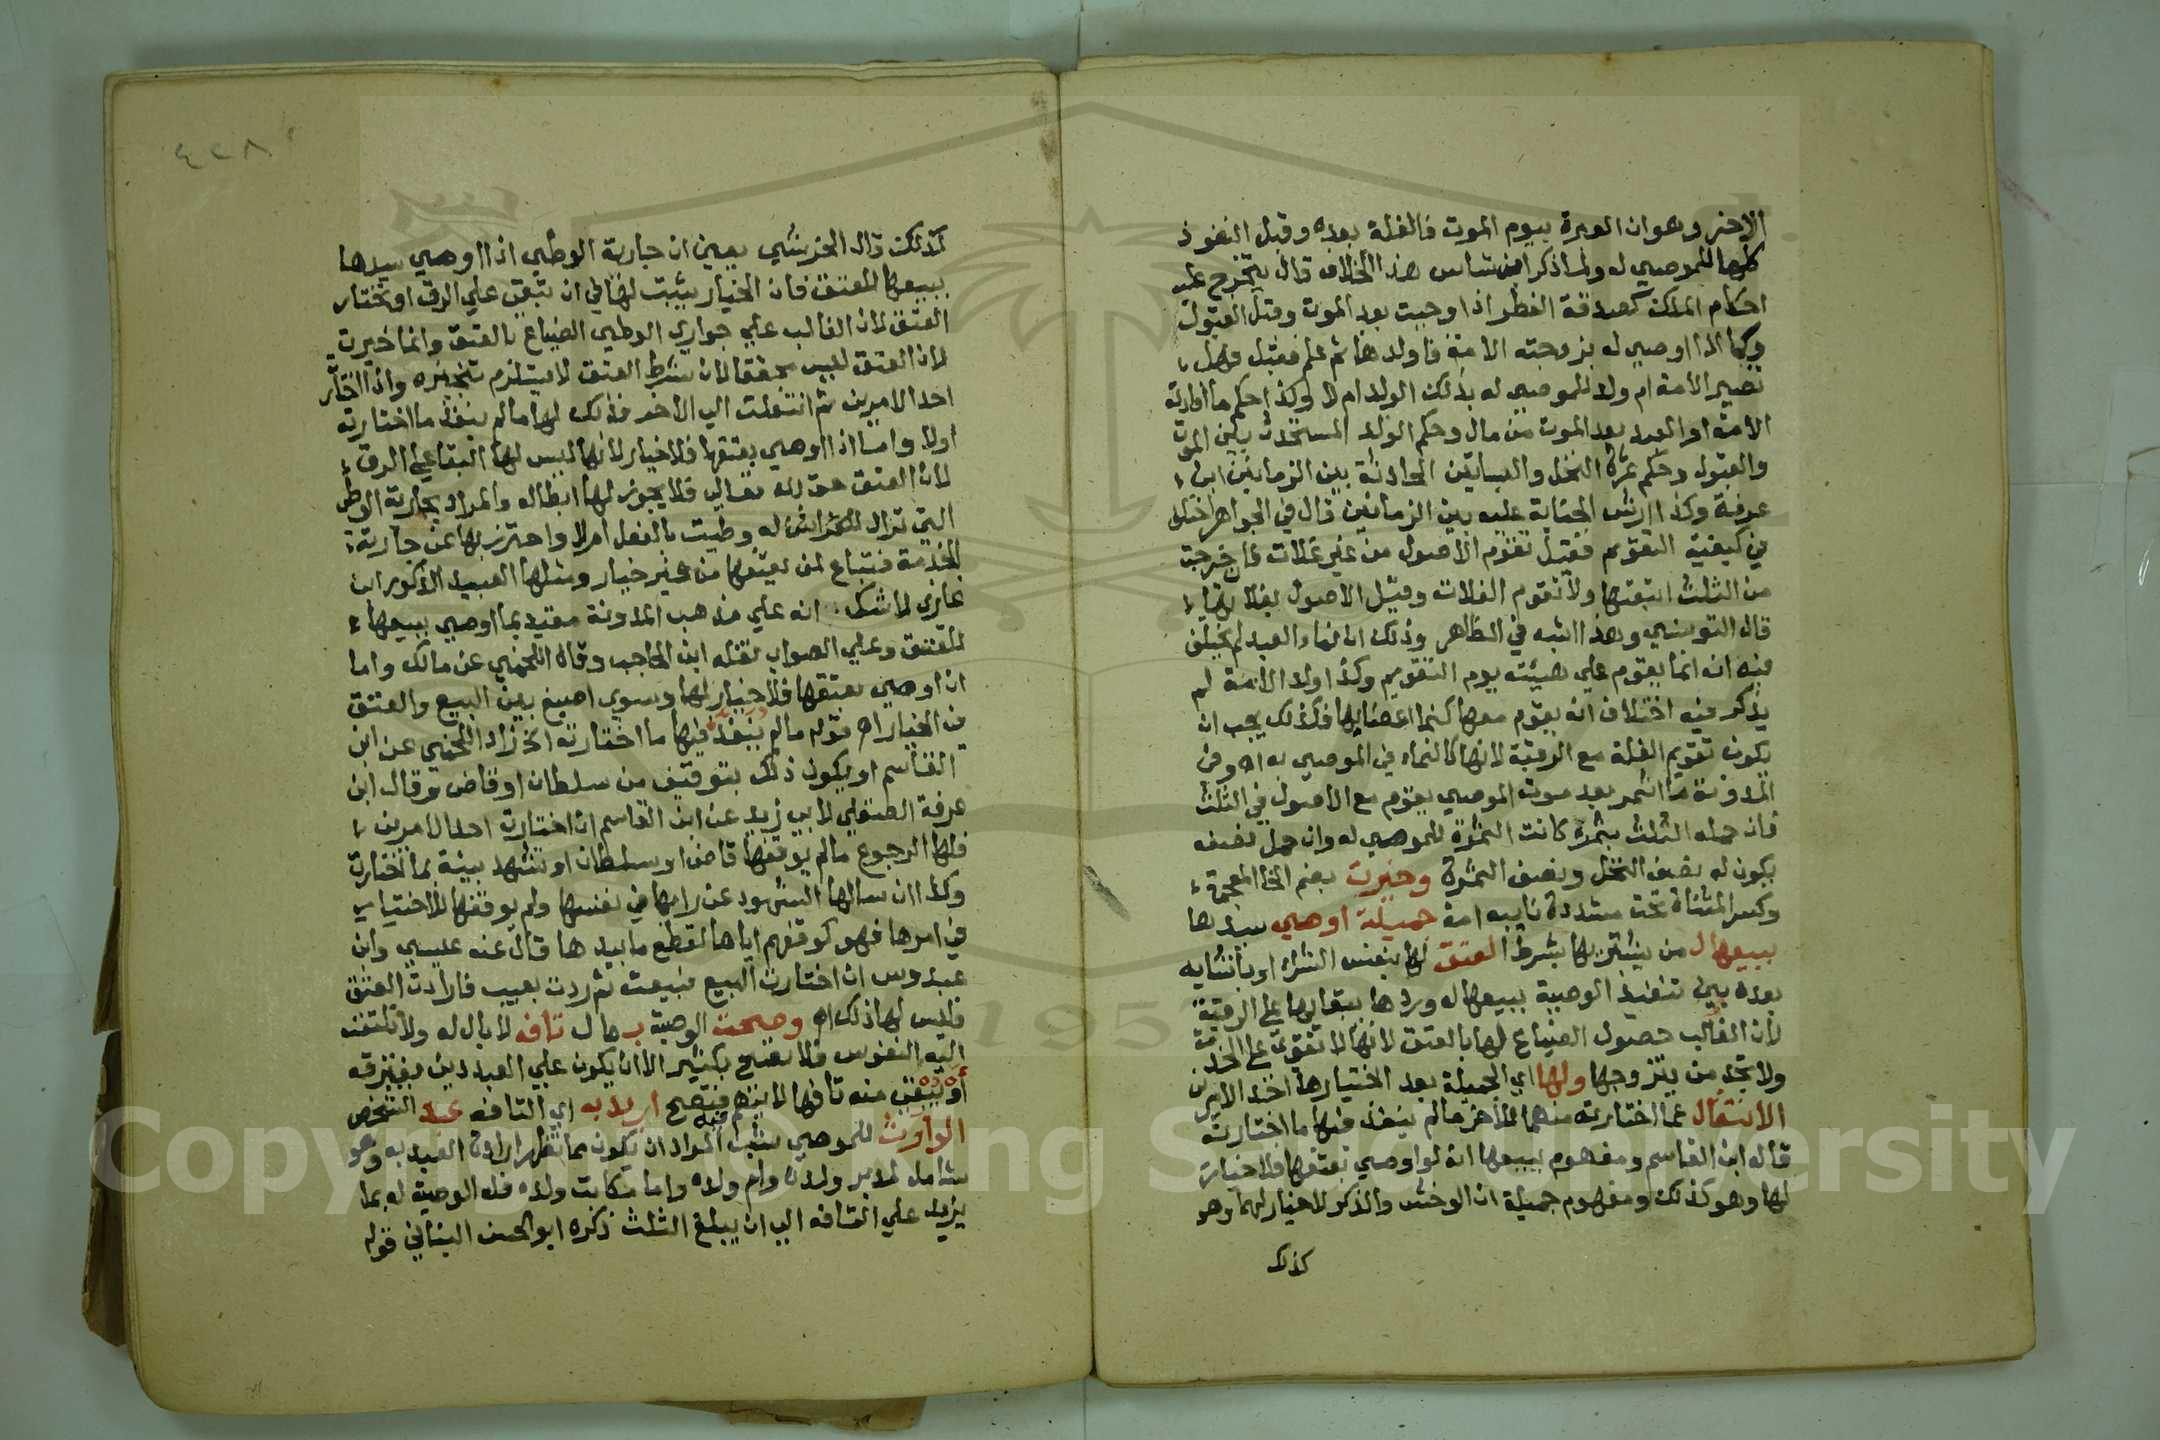 الاخر وهو ان العبرة بيوم الموت فالغلة بعده وقبل النفوذ
كلها للموصي له ولما ذكر ابن شاس هذا الخلاف قال يتخرج عليه
احكام الملك كصدقة الفطر اذا وجبت بعد الموت وقبل القبول
وكما اذا اوصي له بزوجته الامة فاولدها ثم علم فقبل فهل
تصير الامة ام ولد للموصي له بذلك الولد ام لا وكذا حكم ما افادته
الامة او العبد بعد الموت من مال وحكم الولد المستحدث بين الموت
والقبول وحكم ثمرة النخل والبساتين الحادثة بين الزمانين ابن
عرفة وكذا ارش الجناية عليه بين الزمانين قال في الجواهر اختلف
في كيفية التقويم فقيل تقوم الاصول من غير غلات فان خرجت
من الثلث اتبعتها ولا تقوم الغلات وقيل الاصول بغلاتها
قال التونسي وهذا اشبه في الظاهر وذلك ان نماء العبد لم يختلف
فيه انه انما يقوم علي هيئته يوم التقويم وكذا ولد الامة لم
يذكر فيه اختلاف انه يقوم معها كنما اعضايها فكذلك يجب ان
يكون تقويم الغلة مع الرقبة لانها كالنماء في الموصي به اه وفي
المدونة ما اثمر بعد موت الموصي يقوم مع الاصول في الثلث
فان حمله الثلث بثمرة كانت الثمرة للموصي له وان حمل نصفه
يكون له نصف النخل ونصف الثمرة وخيرت بضم الخا المعجمة
وكسر المثناة تحت مشددة نايبه امة جميلة اوصي سيدها
ببيعها ل من يشتريها بشرط العتق لها بنفس الشراء او بانشايه
بعده بين تنفيذ الوصية ببيعها له وردها ببقايها علي الرقية
لان الغالب حصول الضياع لها بالعتق لانها لا تقوى علي الخدمة
ولا تجد من يتزوجها ولها اي الجميلة بعد اختيارها احد الامرين
الانتقال عما اختارته منهما للاخر ما لم ينفذ فيها ما اختارته
قاله ابن القاسم ومفهوم ببيعها انه لو اوصي بعتقها فلا خيار
لها وهو كذلك ومفهوم جميلة ان الوخش والذكر لا خيار لهما وهو
كذلك
٤٢٨
كذلك قال الخرشي يعني ان جارية الوطي اذا اوصي سيدها
ببيعها للعتق فان الخيار يثبت لها في ان تبقى علي الرق او تختار
العتق لان الغالب علي جواري الوطي الضياع بالعتق وانما خيرت
لان العتق ليس محققا لان شرط العتق لا يستلزم تنجيزه وان اختار
احد الامرين ثم انتقلت الي الاخر فذلك لها ما لم ينفذ ما اختارته
اولا واما اذا اوصي بعتقها فلا خيار لانها ليس لها البقا علي الرق
لان العتق حق لله تعالي فلا يجوز لها ابطاله والمراد بجارية الوطي
التي تراد للفراش له وطيت بالفعل ام لا واحترز بها عن جارية
الخدمة فتباع لمن يعتقها من غير خيار ومثلها العبيد الذكور ابن
غازي لا شك انه علي مذهب المدونة مقيد بما اوصي ببيعها
للعتق وعلي الصواب نقله ابن الحاجب وقاله اللخمي عن مالك واما
ان اوصي بعتقها فلا خيار لها وسوي اصبغ بين البيع والعتق
في الخيار اه قوله ما لم ينفذ فيها ما اختارته الخ زاد اللخمي عن ابن
القاسم او يكون ذلك بتوقيف من سلطان او قاض وقال ابن
عرفة الصقلي لابي زيد عن ابن القاسم ان اختارت احد الامرين
فلها الرجوع ما لم يوقفها قاض او سلطان او تشهد بينة بما اختارت
وكذا ان سالها الشهود عن رايها في نفسها ولم يوقفها للاختيار
في امرها فهو كوقفهم اياها لقطع ما بيدها قال عنه عيسي وابن
عبدوس ان اختارت البيع فبيعت ثم ردت بعيب فارادت العتق
فليس لها ذلك اه وصحت الوصية ب مال تافه لا بال له ولا تلتفت
اليه النفوس فلا تصح بكثير الا ان يكون علي العبد دين يغترقه
او يبقي منه تافها لا ينهم فيه فتصح اريد به اي التافه عبد الشخص
الوارث للموصي سبب المراد ان تكون مما تظهر ارادة العبد به وهو
شامل لمدبر ولده وام ولده واما مكاتب ولده فله الوصية له بما
يزيد علي التافه الي ان يبلغ الثلث ذكره ابو الحسن البناني قوله
Copyright © King Saud University
195